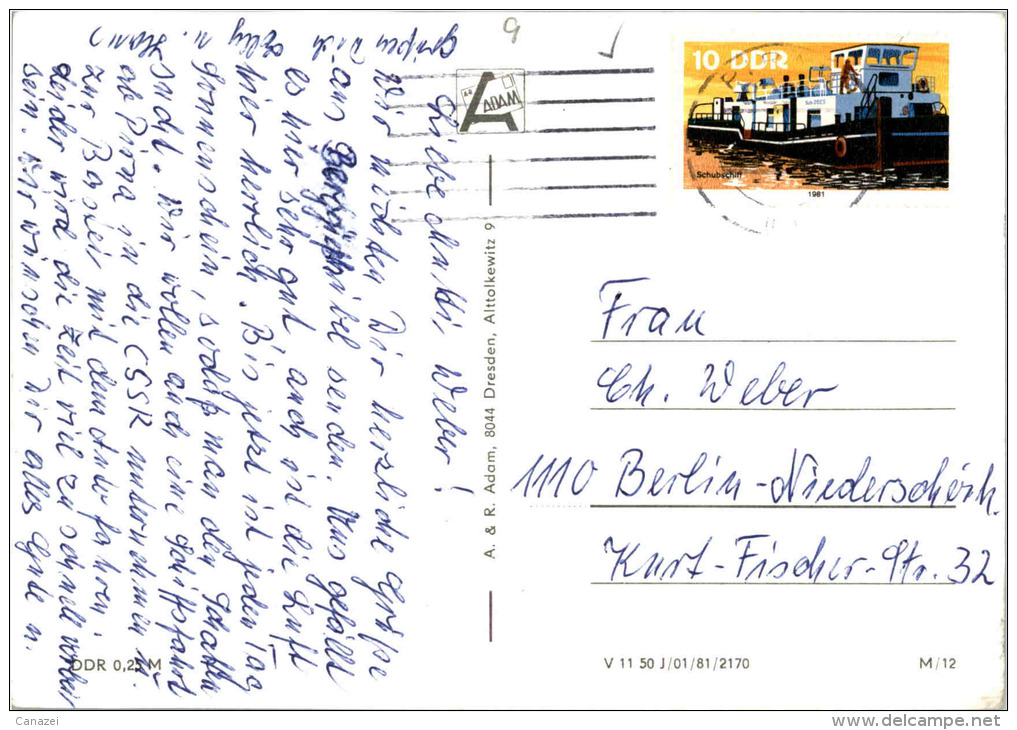 Liebe Antki, Weber!
Wir möchten Dir herzliche Grüße
aus senden. Uns gefällt
es hier sehr gut auch ist die Luft
hier herrlich. Bis jetzt ist jeden Tag
Sonnenschein, sodaß man den Schatten
sucht. Wir wollen auch eine Schiffsfahrt
ab Pirna in die CSSR unternehmen u.
zur Bastei mit dem Auto fahren.
Leider wird die Zeit viel zu schnell vorbei
sein. Wir wünschen Dir alles Gute u.
grüßen Dich
u. Hans
9
A & R
ADAM
A
10 DDR
Schubschiff
1981
A. & R. Adam, 8044 Dresden, Alttolkewitz 9
Frau
Ch. Weber
1110 Berlin-Niederschönh.
Kurt-Fischer-Str. 32
DDR 0,25 M
V 11 50 J/01/81/2170
M/12
Canazei
www.delcampe.net